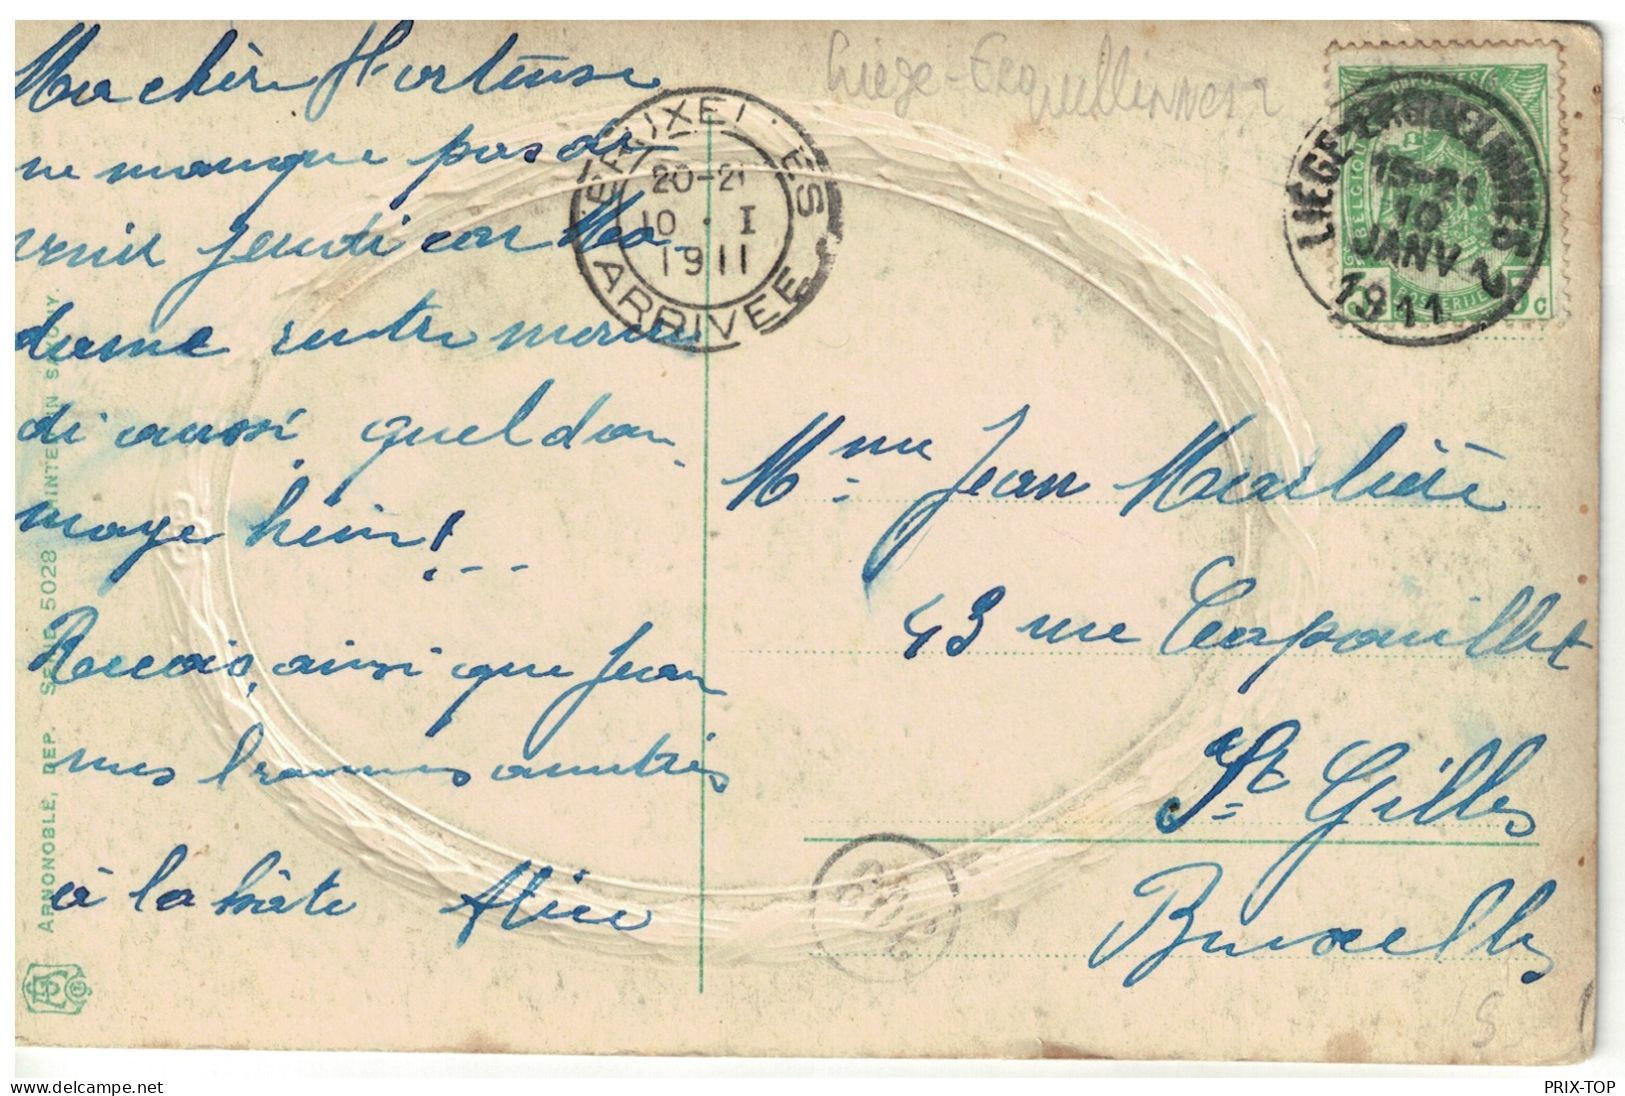 Ma chère Hortense
ne manque pas de
venir jeudi car Ma-
dame rentre mercre
di aussi quel dom-
mage hein!...
Reçois, ainsi que Jean
mes bonnes amitiés
à la hâte Alice
Liège-Erquelinnes 2
BRUXELLES
20-21
10 · I
1911
ARRIVEE
LIEGE-ERQUELINNES 2
15-21
10
JANV
1911
BELGIQUE
POSTERIJEN
5c
Mme Jean Marlière
43 rue Capouillet
St Gilles
Bruxelles
ARNONOBLE, DEP. SERIE 5028 PRINTED IN SAXONY.
PRIX-TOP